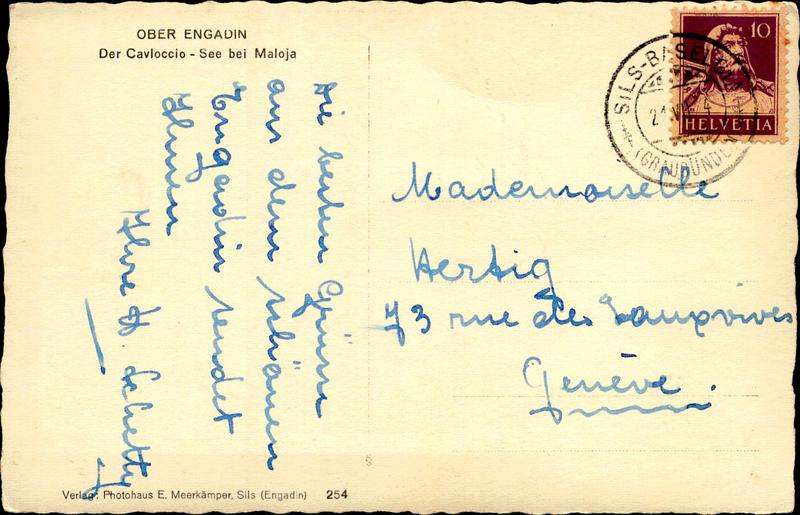 OBER ENGADIN
Der Cavloccio - See bei Maloja
Die besten Grüsse
aus dem schönen
Engadin sendet
Ihnen
Ihre H. Schetty
10
HELVETIA
SILS-BASELGIA
(GRAUBÜNDEN)
Mademoiselle
Cl.
Hertig
73 rue des Eauxvives
Genève.
Verlag: Photohaus E. Meerkämper, Sils (Engadin) 254